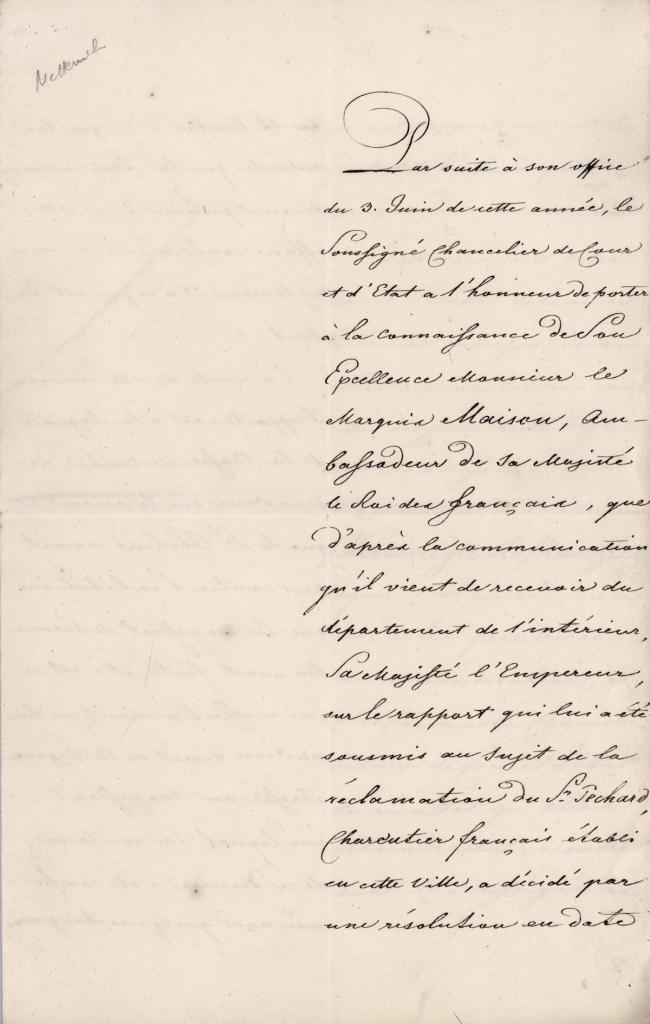 Metternich
Par suite à son office
du 3. Juin de cette année, le
Soussigné Chancelier de Cour
et d'Etat a l'honneur de porter
à la connaissance de Son
Excellence Monsieur le
Marquis Maison, Am-
bassadeur de Sa Majesté
le Roi des français, que
d'après la communication
qu'il vient de recevoir du
département de l'intérieur,
Sa Majesté l'Empereur,
sur le rapport qui lui a été
soumis au sujet de la
réclamation du Sr. Pechard,
Charcutier français établi
en cette Ville, a décidé par
une résolution en date